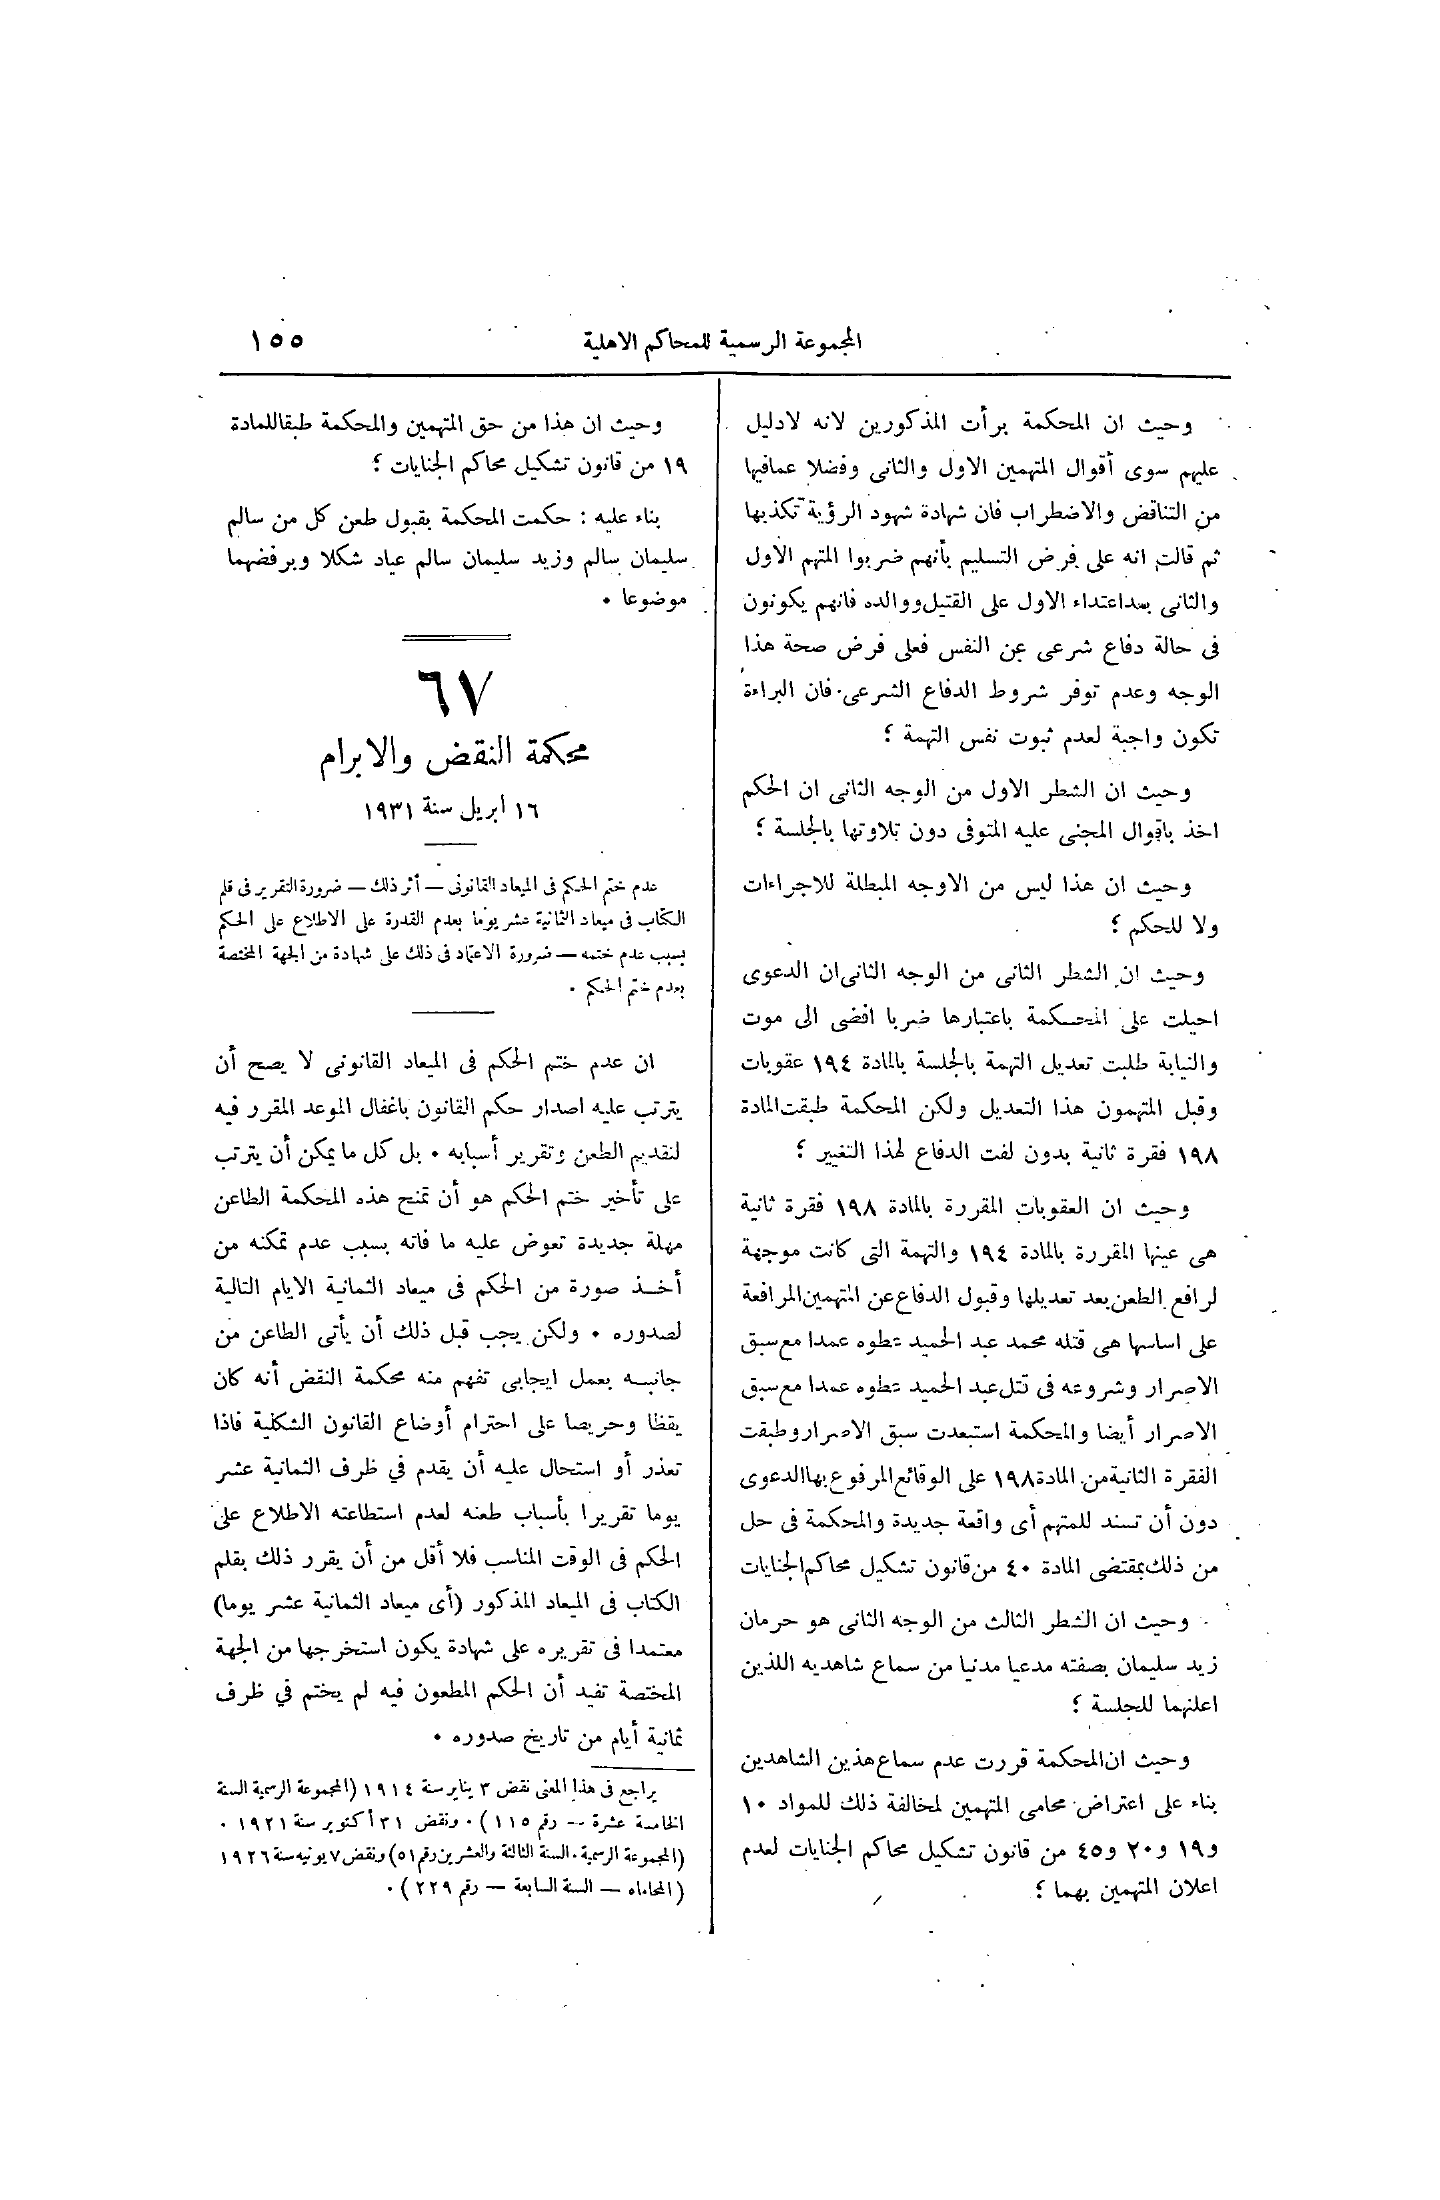 المجموعة الرسمية للمحاكم الاهلية
١٥٥
وحيث ان المحكمة برأت المذكورين لانه لادليل
عليهم سوى أقوال المتهمين الاول والثانى وفضلا عمافيها
من التناقض والاضطراب فان شهادة شهود الرؤية تكذبها
ثم قالت انه على فرض التسليم بأنهم ضربوا المتهم الاول
والثانى بعداعتداء الاول على القتيل ووالده فانهم يكونون
فى حالة دفاع شرعى عن النفس فعلى فرض صحة هذا
الوجه وعدم توفر شروط الدفاع الشرعى فان البراءة
تكون واجبة لعدم ثبوت نفس التهمة ؛
وحيث ان الشطر الاول من الوجه الثانى ان الحكم
اخذ باقوال المجنى عليه المتوفى دون تلاوتها بالجلسة ؛
وحيث ان هذا ليس من الاوجه المبطلة للاجراءات
ولا للحكم ؛
وحيث ان الشطر الثانى من الوجه الثانى ان الدعوى
احيلت على المحكمة باعتبارها ضربا افضى الى موت
والنيابة طلبت تعديل التهمة بالجلسة بالمادة ١٩٤ عقوبات
وقبل المتهمون هذا التعديل ولكن المحكمة طبقت المادة
١٩٨ فقرة ثانية بدون لفت الدفاع لهذا التغيير ؛
وحيث ان العقوبات المقررة بالمادة ١٩٨ فقرة ثانية
هى عينها المقررة بالمادة ١٩٤ والتهمة التى كانت موجهة
لرافع الطعن بعد تعديلها وقبول الدفاع عن المتهمين المرافعة
على اساسها هى قتله محمد عبد الحميد عطوه عمدا مع سبق
الاصرار وشروعه فى قتل عبد الحميد عطوه عمدا مع سبق
الاصرار أيضا والمحكمة استبعدت سبق الاصرار وطبقت
الفقرة الثانية من المادة ١٩٨ على الوقائع المرفوع بها الدعوى
دون أن تسند للمتهم أى واقعة جديدة والمحكمة فى حل
من ذلك بمقتضى المادة ٤٠ من قانون تشكيل محاكم الجنايات
وحيث ان الشطر الثالث من الوجه الثانى هو حرمان
زيد سليمان بصفته مدعيا مدنيا من سماع شاهديه اللذين
اعلنهما للجلسة ؛
وحيث ان المحكمة قررت عدم سماع هذين الشاهدين
بناء على اعتراض محامى المتهمين لمخالفة ذلك للمواد ١٠
و١٩ و٢٠ و٤٥ من قانون تشكيل محاكم الجنايات لعدم
اعلان المتهمين بهما ؛
وحيث ان هذا من حق المتهمين والمحكمة طبقا للمادة
١٩ من قانون تشكيل محاكم الجنايات ؛
بناء عليه : حكمت المحكمة بقبول طعن كل من سالم
سليمان سالم وزيد سليمان سالم عياد شكلا وبرفضهما
موضوعا ٠
٦٧
محكمة النقض والابرام
١٦ أبريل سنة ١٩٣١
عدم ختم الحكم فى الميعاد القانونى — أثر ذلك — ضرورة التقرير فى قلم
الكتاب فى ميعاد الثمانية عشر يوما بعدم القدرة على الاطلاع على الحكم
بسبب عدم ختمه — ضرورة الاعتماد فى ذلك على شهادة من الجهة المختصة
بعدم ختم الحكم ٠
ان عدم ختم الحكم فى الميعاد القانونى لا يصح أن
يترتب عليه اصدار حكم القانون باغفال الموعد المقرر فيه
لتقديم الطعن وتقرير أسبابه ٠ بل كل ما يمكن أن يترتب
على تأخير ختم الحكم هو أن تمنح هذه المحكمة الطاعن
مهلة جديدة تعوض عليه ما فاته بسبب عدم تمكنه من
أخذ صورة من الحكم فى ميعاد الثمانية الايام التالية
لصدوره ٠ ولكن يجب قبل ذلك أن يأتى الطاعن من
جانبه بعمل ايجابى تفهم منه محكمة النقض أنه كان
يقظا وحريصا على احترام أوضاع القانون الشكلية فاذا
تعذر أو استحال عليه أن يقدم في ظرف الثمانية عشر
يوما تقريرا بأسباب طعنه لعدم استطاعته الاطلاع على
الحكم فى الوقت المناسب فلا أقل من أن يقرر ذلك بقلم
الكتاب فى الميعاد المذكور (أى ميعاد الثمانية عشر يوما)
معتمدا فى تقريره على شهادة يكون استخرجها من الجهة
المختصة تفيد أن الحكم المطعون فيه لم يختم في ظرف
ثمانية أيام من تاريخ صدوره ٠
يراجع فى هذا المعنى نقض ٣ يناير سنة ١٩١٤ (المجموعة الرسمية السنة
الخامسة عشرة — رقم ١١٥) ٠ ونقض ٣١ أكتوبر سنة ١٩٢١ ٠
(المجموعة الرسمية ٠ السنة الثالثة والعشرين رقم ٥١) ونقض ٧ يونيه سنة ١٩٢٦
(المحاماه — السنة السابعة — رقم ٢٢٩) ٠